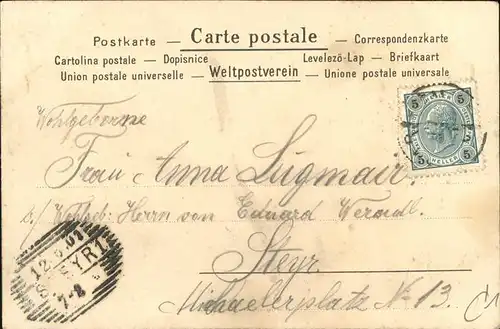 Postkarte — Carte postale — Correspondenzkarte
Cartolina postale — Dopisnice Levelező-Lap — Briefkaart
Union postale universelle — Weltpostverein — Unione postale universale
5 5
5 HELLER 5
Wohlgeborne
Frau Anna Lugmair
b/ Wohlgeb: Herrn von Eduard Werndl.
Steyr
Michaelerplatz No 13.
STEYR 1
7-8